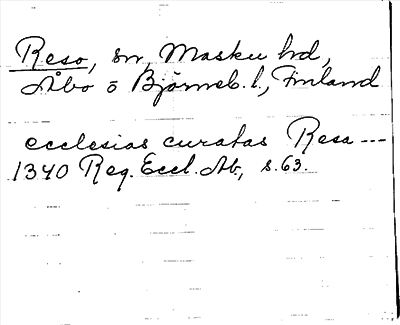 Reso, sn, Masku hd,
Åbo o Björneb. l., Finland
ecclesias curatas Resa ---
1340 Reg. Eccl. Ab, s. 63.